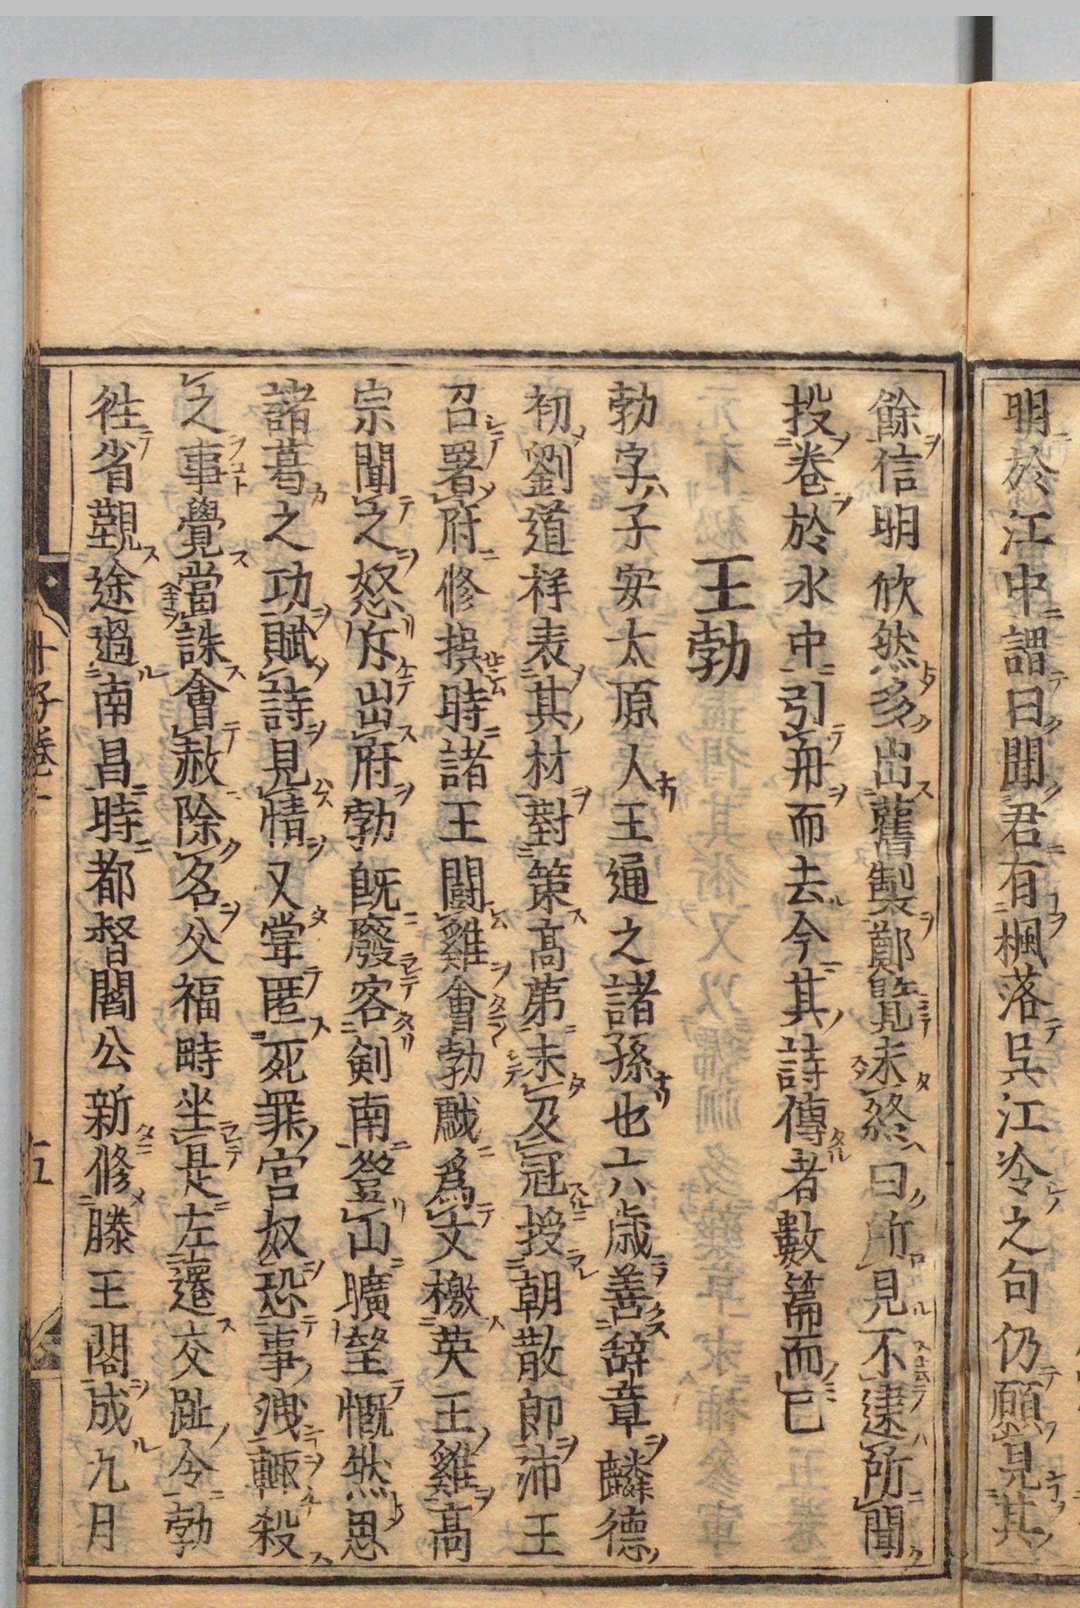 明於江中謂曰聞君有楓落吳江冷之句仍願見其
餘信明欣然多出舊製鄭覽未終曰所見不逮所聞
投卷於水中引舟而去今其詩傳者數篇而已
王勃
勃字子安太原人王通之諸孫也六歲善辭章麟德
初劉道祥表其材對策高第未及冠授朝散郎沛王
召署府修撰時諸王鬪雞會勃戲爲文檄英王雞高
宗聞之怒斥出府勃既廢客劍南登山曠望慨然思
諸葛之功賦詩見情又嘗匿死罪官奴恐事洩輒殺
之事覺當誅會赦除名父福畤坐是左遷交趾令勃
往省觀途過南昌時都督閻公新修滕王閣成九月
十子卷一
五